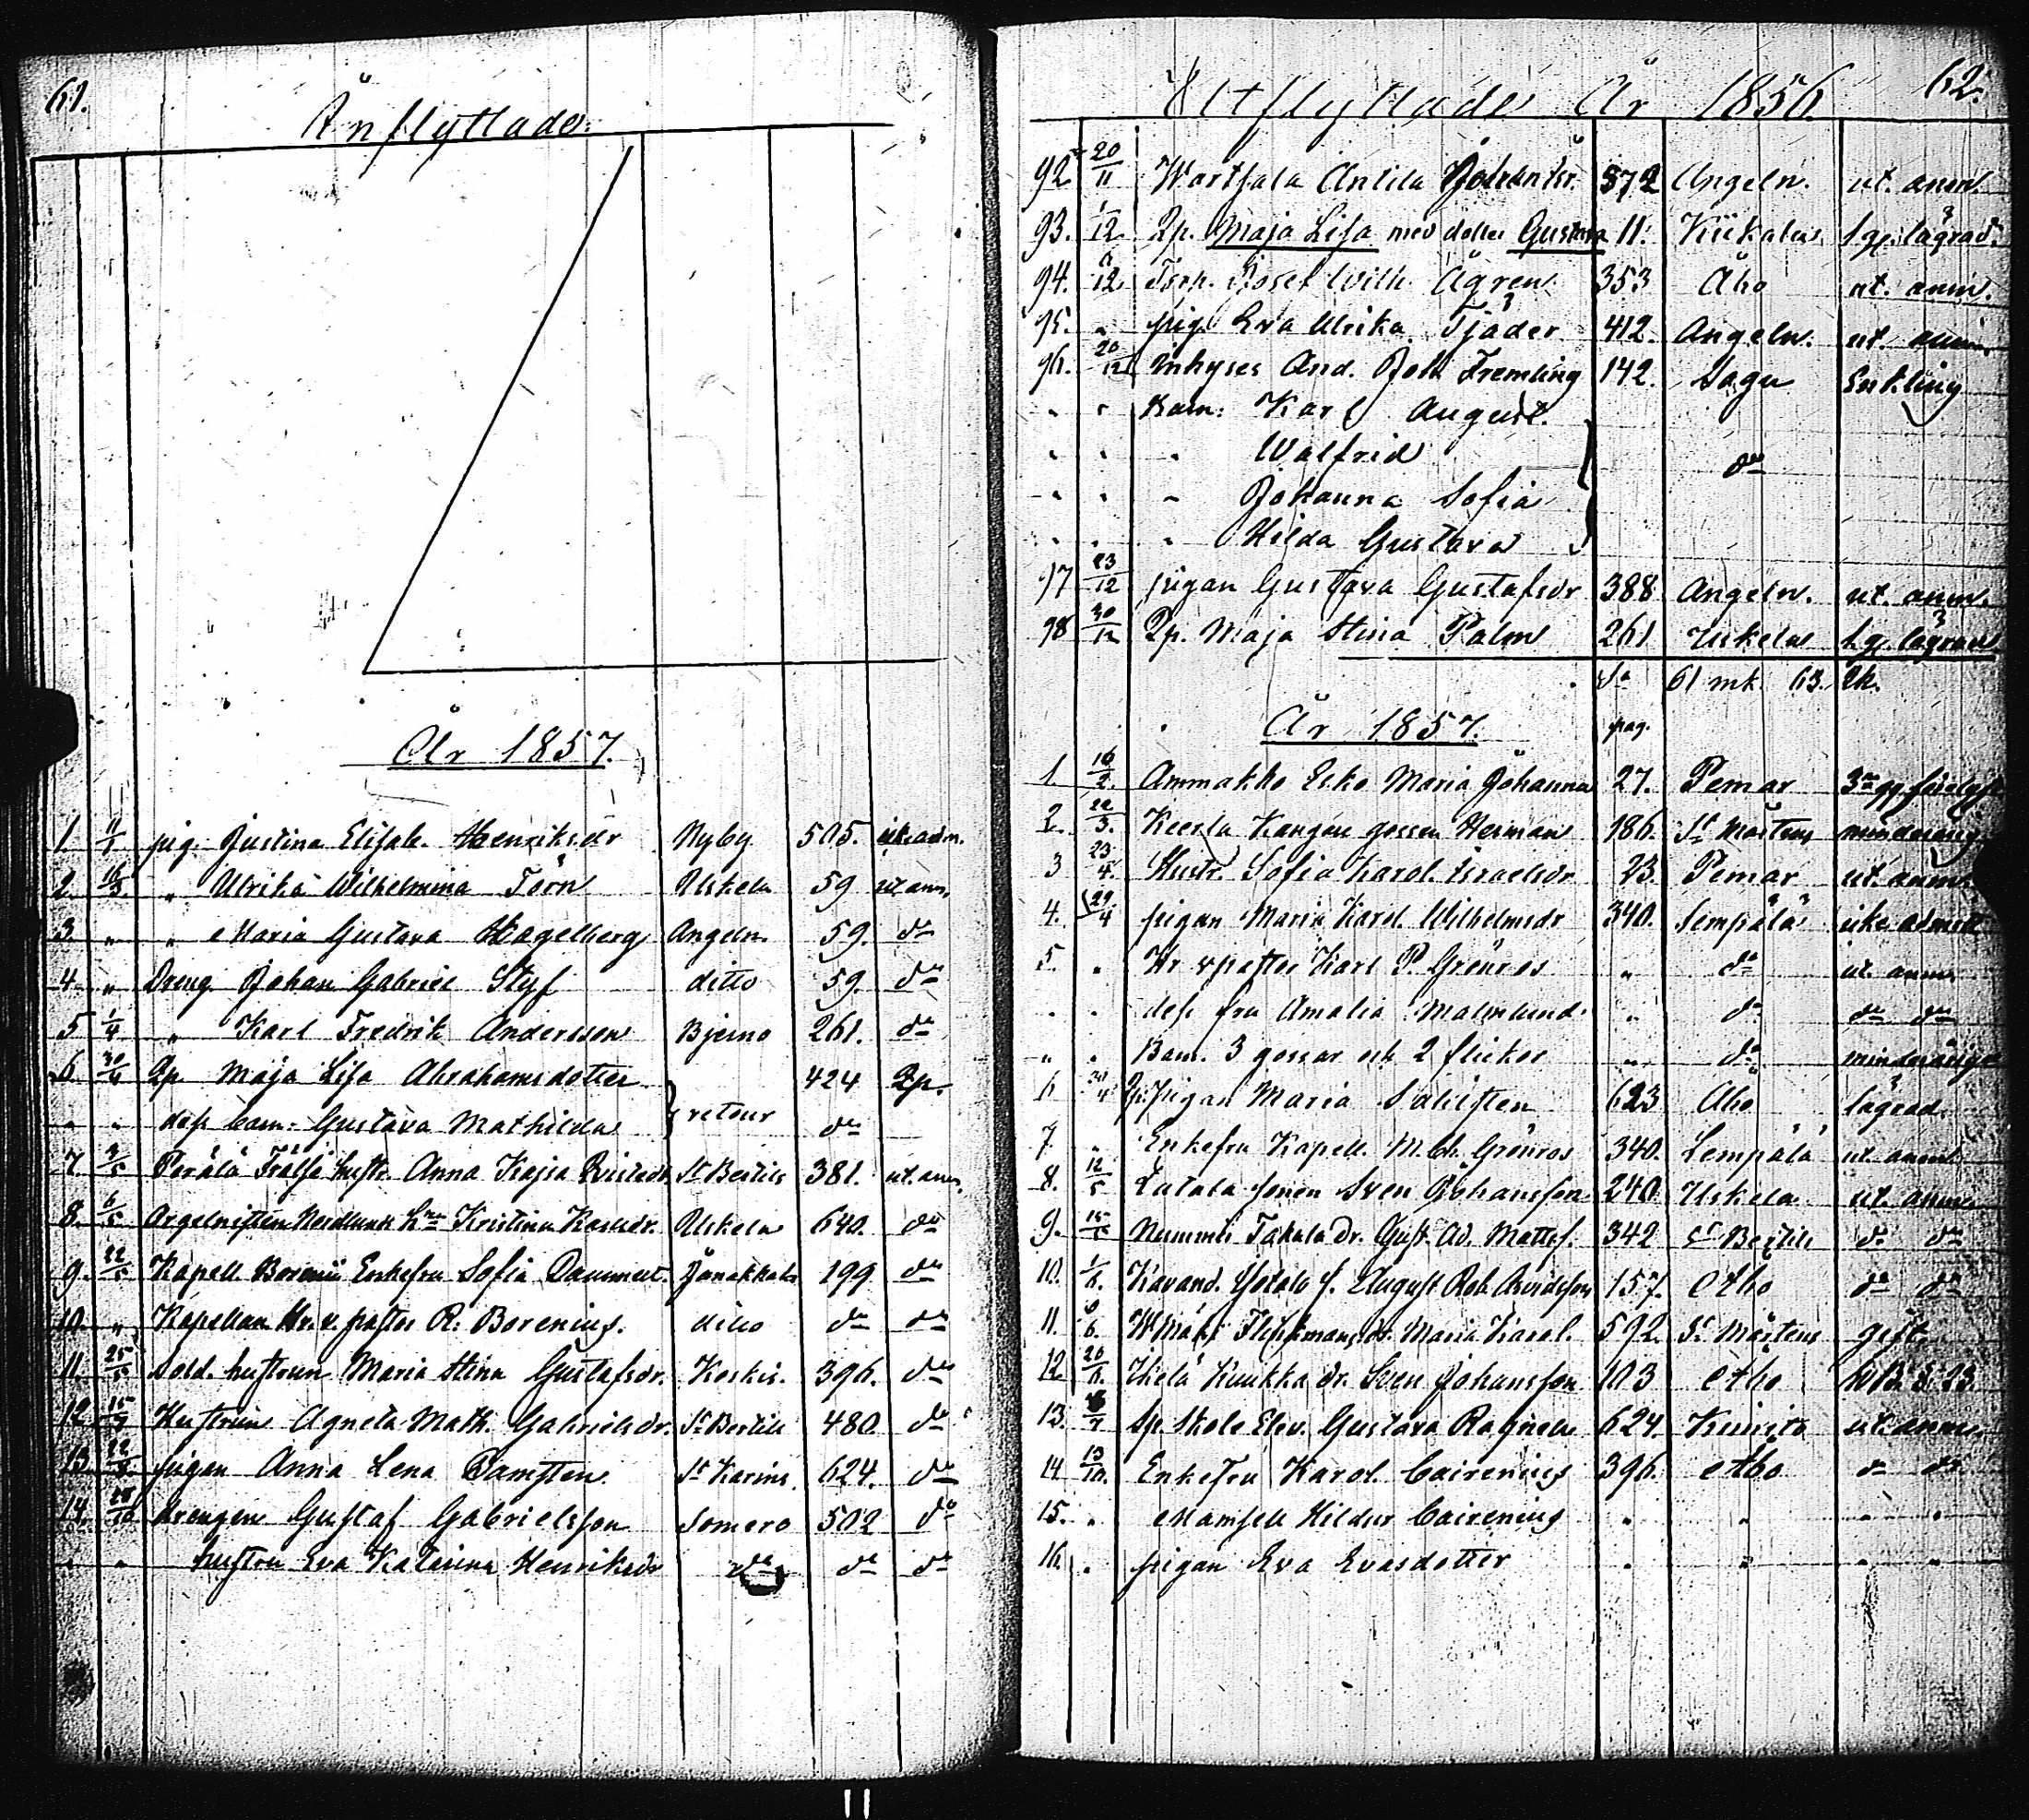 61.
Inflyttade.
År 1857.
1 11/1 pig. Justina Elisab. Henriksdr Nyby 505. ick. adm.
2. 16/3. " Ulrika Wilhelmina Törn Uskela 59 ut. anm.
3. " " Maria Gustava Hagelberg Angeln. 59. do
4 " Dreng Johan Gabriel Styf ditto 59. do
5 1/4 " Karl Fredrik Andersson Bjerno 261. do
6. 30/4 Qp. Maja Lisa Abrahamsdotter 424 Qp.
" " dess barn: Gustava Mathilda } retour do
7. 2/5 Perälä Trälsä hustr. Anna Kajsa St Bertils 381. ut. anm.
8. 6/5 Kristina Karlsdr. Uskela 640. do
9. 22/5 Kapell. Borenii Enkefru Sofia Janakkala 199 do
10. " Kapellan Hr. v. pastor R. Borenius. ditto do do
11. 25/5 Sold. hustrun Maria Stina Gustafsdr. Koskis. 396. do
12 Hustrun Agneta Math. Gabrielsdr. St Bertils 480 do
13 pigan Anna Lena Ramsten St Karins. 624. do
14. drengen Gustaf Gabrielsson Somero 502 do
" " hustru Eva Katarina Henriksdr do do do
62.
Utflyttade År 1856.
92 20/11 Wartsala Antila Johan 572 Angeln. ut. anm.
93. 1/12 Qp. Maja Lisa med dotter Gustava 11. Kiikala, lägrad.
94. Josef Wilh. Ågren 353 Åbo ut. anm.
95. " pig. Eva Ulrika Tjäder 412. Angeln. ut. anm.
96. 20/12 Inhyses And. Joh. Fremling 142. Sagu Enkling
" " Barn: Karl August.
" " " Walfrid } do
" " " Johanna Sofia
" " " Hilda Gustava
97 23/12 pigan Gustava Gustafsdr 388 Angeln. ut. anm.
98 30/12 Qp. Maja Stina Palm 261 Uskela lägrad
61 mk. 63. Qk.
År 1857. pag.
1. 16/2. Ammakko Esko Maria Johanna 27. Pemar
2. 22/3. Keesla Kangas gossen Herman 186. St Mårtens minderårig
3 23/4. Hustr. Sofia Karol. Israelsdr 23. Pemar ut. anm.
4. 29/4 pigan Maria Karol. Wilhelmsdr 340. Lempälä
5. " Hr. v. pastor Karl P. Grönros " do ut. anm.
" " dess fru Amalia Malmlund. " do do do
" " Barn. 3 gossar och 2 flickor " do minderårige
6 Qp. pigan Maria 623 Åbo lägrad.
7. " Enkefru Kapell. M. Ch. Grönros 340. Lempälä ut. anm.
8. 12/5 Latala sonen Sven Johansson 240 Uskela ut. anm.
9. 15/5 Nummis Takala dr. Gust. Ad. Matts. 342 St Bertils do do
10. 1/6. August Rob. 157. Åbo do do
11. 6/6. Maria Karol. 592. St Mårtens gift
12 20/6. Kuukka dr. Sven Johansson 103 Åbo
13. Sp. Skole Elev. Gustava Ragnela 624. Kimito ut. anm.
14 13/10. Enkefru Karol. Cairenius 396. Åbo do do
15. " Mamsell Hildur Cairenius " " " "
16. " pigan Eva Evasdotter " " " "
11